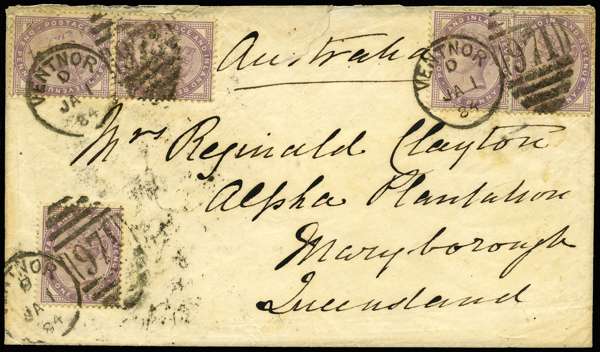 Australia
Mrs Reginald Clayton
Alpha Plantation
Maryborough
Queensland
VENTNOR
D
JA 1
84
VENTNOR
D
JA 1
84
971
NTNOR
D
JA
84
97